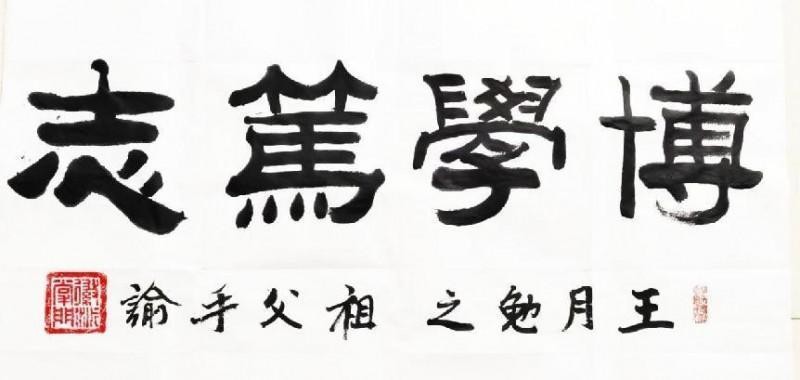 博學篤志
王月勉之 祖父手諭